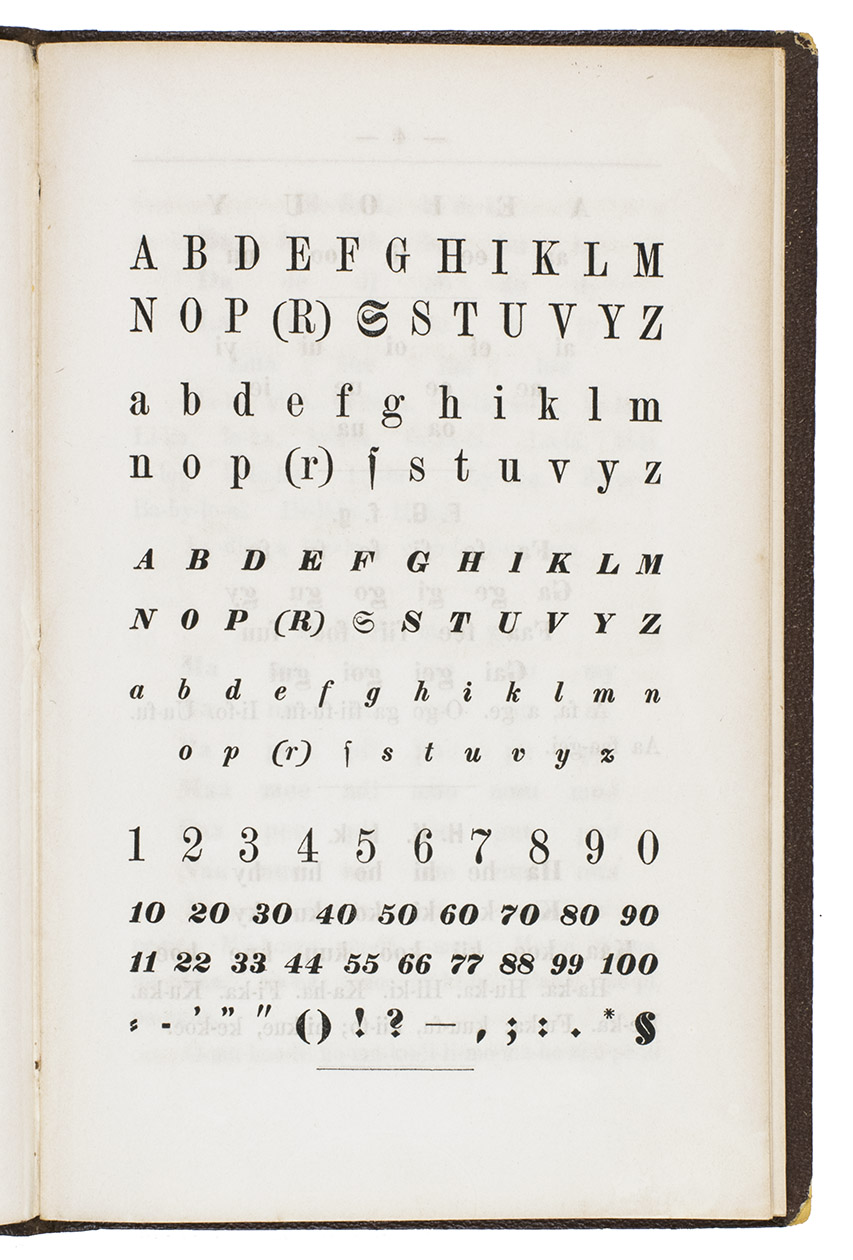 A B D E F G H I K L M
N O P (R) 𝕾 S T U V Y Z
a b d e f g h i k l m
n o p (r) ſ s t u v y z
A B D E F G H I K L M
N O P (R) 𝔖 S T U V Y Z
a b d e f g h i k l m n
o p (r) ſ s t u v y z
1 2 3 4 5 6 7 8 9 0
10 20 30 40 50 60 70 80 90
11 22 33 44 55 66 77 88 99 100
⸗ - ’ ” " () ! ? — , ; : . * §